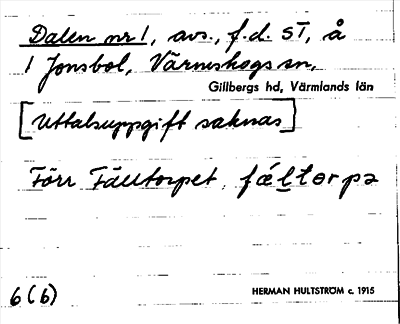 Dalen nr 1, avs., f.d. ST, å
1 Jonsbol, Värmskogs sn,
Gillbergs hd, Värmlands län
[Uttalsuppgift saknas]
Förr Fälltorpet, fǽltorpə
6 (6)
HERMAN HULTSTRÖM c. 1915